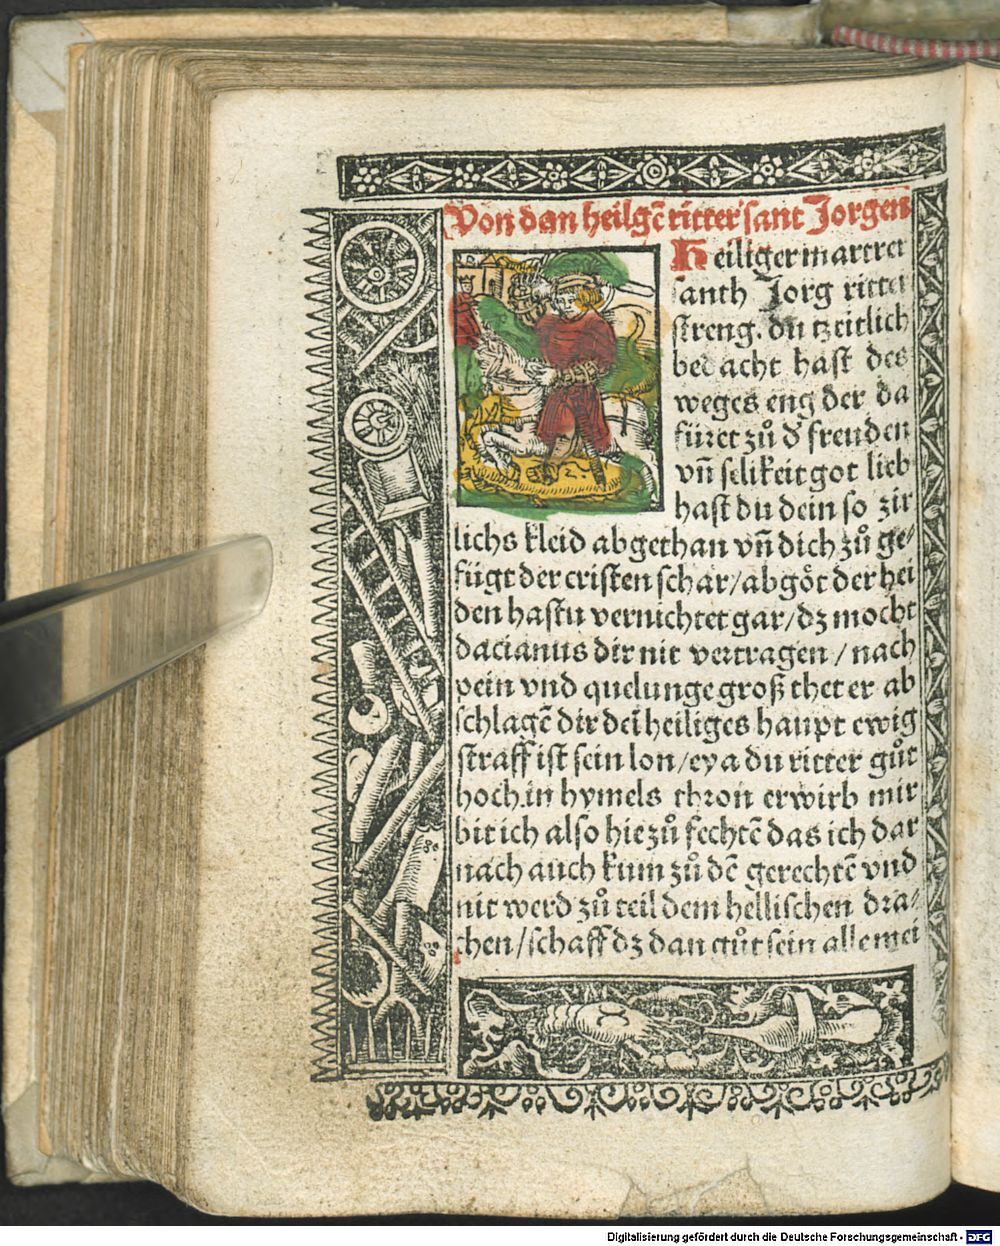 Von dan heilgē ritter sant Jorgen
Heiliger martrer
santh Jorg ritter
streng. du tzeitlich
bedacht hast des
weges eng der da
füret zů d' freuden
vn̄ selikeit got lieb
hast du dein so zir
lichs kleid abgethan vn̄ dich zů ge⸗
fügt der cristen schar/abgöt der hei
den hastu vernichtet gar/dz mocht
dacianus dir nit vertragen/nach
pein vnd quelunge groß thet er ab
schlagē dir dei̅ heiliges haupt ewig
straff ist sein lon/eya du ritter gůt
hoch in hymels thron erwirb mir
bit ich also hie zů fechtē das ich dar
nach auch kum zů dē gerechtē vnd
nit werd zů teil dem hellischen dra⸗
chen/schaff dz dan gůt sein alle mei
Digitalisierung gefördert durch die Deutsche Forschungsgemeinschaft - DFG